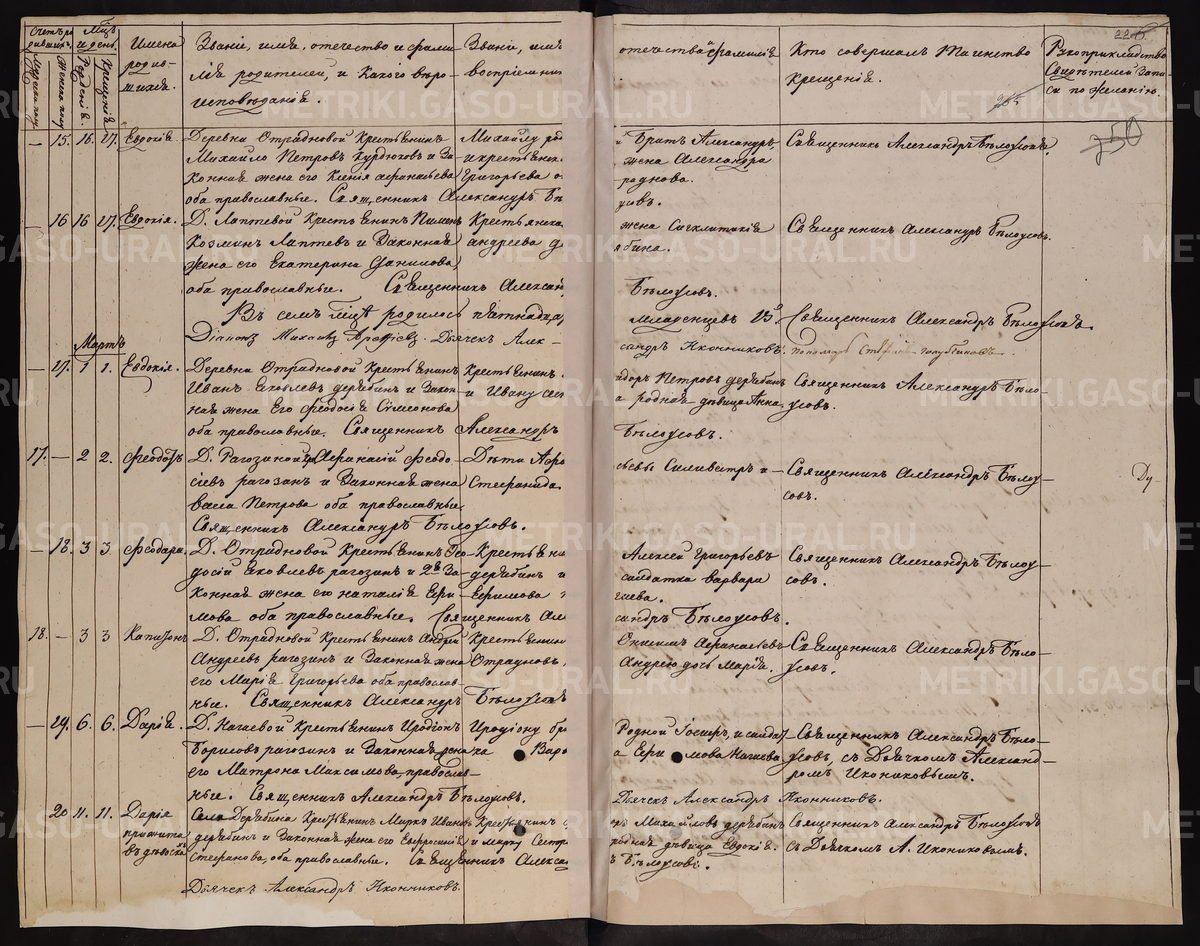 Имена родив-шихся.
Званіе, имя, отечество и фами-
лія родителей, и какого веро-
исповѣданія.
Званіе, имя
воспріемник
отечества и фамилія
Кто совершалъ таинство
крещенія.
Рукоприкладство
Свидѣтелей запи-
си по желанію.
— 15. 16. 27. Евдокія
Деревни Отрадновой Крестьянинъ
Михайло Петровъ Курдюковъ и за-
конная жена его Ксенія Афанасьева
оба православные. Священникъ Александръ Бѣ
Михайлу род
и крестьянк
Григорьева о
й Братъ Александръ,
жена Александра
роднова.
усовъ.
Священникъ Александръ Бѣлоусовъ.
250
— 16 16 27. Евдокія.
Д. Лаптевой Крестьянинъ Пименъ
Козминъ Лаптевъ и законная
жена его Екатерина Данилова,
оба православные. Священникъ Алексан
Крестьянка
Андреева д
жена Сигклитикія
ябина.
Бѣлоусовъ.
Священникъ Александръ Бѣлоусовъ.
Въ семъ мцѣ родилось пятнадца
младенцевъ 15.
Священникъ Александръ Бѣлоусовъ.
Діаконъ Михаилъ Арефіевъ. Дьячекъ Алек-
сандръ Иконниковъ.
Мартъ
— 17. 1 1. Евдокія.
Деревни Отрадновой Крестьянинъ
Иванъ Яковлевъ дерябинъ и закон-
ная жена его Феодосія Симеонова
оба православные. Священникъ Александръ
Крестьянинъ
и Ивану сест
идоръ Петровъ дерябинъ
а родная дѣвица Анна.
Бѣлоусовъ.
Священникъ Александръ Бѣло-
усовъ.
17. — 2 2. Феодотъ
Д. Рагозиной Афанасій Федо-
сіевъ рагозинъ и законная жена
васса Петрова оба православные
Священникъ Александръ Бѣлоусовъ.
Дѣти Афо
Стефанида
сьевы Силивестръ и
Священникъ Александръ Бѣлоу-
совъ.
— 18. 3 3 Федора.
Д. Отрадновой Крестьянинъ Фео-
досій Яковлевъ рагозинъ и 2я за-
конная жена его наталія Ефи-
мова оба православные. Священникъ Але
Крестьяни
дерябинъ и
Ефимова
Алексей Григорьевъ
салдатка варвара
гаева.
сандръ Бѣлоусовъ.
Священникъ Александръ Бѣлоу-
совъ.
18. — 3 3 Капитонъ
Д. Отрадновой Крестьянинъ Андрей
Андреевъ рагозинъ и законная жена
его Марія Григорьева оба православ-
ные. Священникъ Александръ
Крестьянин
Отрадновъ,
Бѣлоусовъ
Онисимъ Афанасьевъ
Андрею дочь Марія.
Священникъ Александръ Бѣло-
усовъ.
— 19. 6. 6. Дарія.
Д. Нагаевой Крестьянинъ Иродіонъ
Борисовъ рагозинъ и законная жена
его Матрона Максимова, православ-
ные. Священникъ Александръ Бѣлоусовъ.
Иродіону бр
ка Варв
Родной Іосифъ, и салдат
а Ефимова Нагаева
Священникъ Александръ Бѣло-
усовъ, съ Дьячкомъ Александ-
ромъ Иконниковымъ.
Дьячекъ Александръ Иконниковъ.
20 11. 11. Дарія
прижита
Села Дерябина Крестьянинъ Маркъ Иванов
дерябинъ и законная жена его Евфросинія
Стефанова, оба православные. Священникъ Алекса
Дьячекъ Александръ Иконниковъ.
Крестьянинъ
и марку Сестр
ъ Михайловъ дерябинъ
родная дѣвица Евдокія.
ъ Бѣлоусовъ.
Священникъ Александръ Бѣлоусовъ
съ Дьячкомъ А. Иконниковымъ.
METRIKI.GASO-URAL.RU